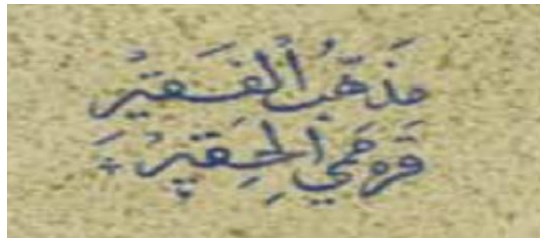 مذهب الفقير
قره مي الحقير